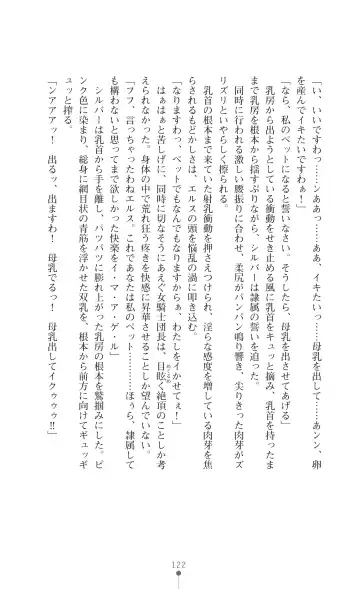 「い、いいですわっ……ンああっ……ああ、イキたい……母乳を出して……あンン、卵
を産んでイキたいですわぁ！」
「なら、私のペットになると誓いなさい。そうしたら、母乳を出させてあげる」
乳房から出ようとしている衝動をせき止める風に乳首をキュッと摘み、乳首を持ったま
まで乳房を根本から揺すぶりながら、シルバーは隷属の誓いを迫った。
同時に行われる激しい腰振りに合わせ、柔尻がパンパン鳴り響き、尖りきった肉芽がズ
リズリといやらしく擦られる。
乳首の根本まで来ていた射乳衝動を押さえつけられ、淫らな感度を増している肉芽を焦
らされるもどかしさは、エルスの頭を悩乱の渦に叩き込む。
「なりますわっ、ペットでもなんでもなりますからぁ、わたしをイかせてぇ！」
はぁはぁと苦しげに、同時に切なそうにあえぐ女騎士団長は、目眩く絶頂のことしか考
えられなかった。身体の中で荒れ狂う疼きを快感に昇華させることしか望んでいない。
「フフ、言っちゃったわねエルス。これであなたは私のペット…………ほぅら、隷属して
も構わないと思ってまで欲しかった快楽をイ・マ・ア・ゲ・ル」
シルバーは乳首から手を離し、パツパツに膨れ上がった乳房の根本を鷲掴みにした。ピ
ンク色に染まり、総身に網目状の青筋を浮かせた双乳を、根本から前方に向けてギュッギ
ュッと搾る。
「ンアアアッ！　出るッ、出ますわ！　母乳でるっ！　母乳出してイクゥゥゥ!!」
122